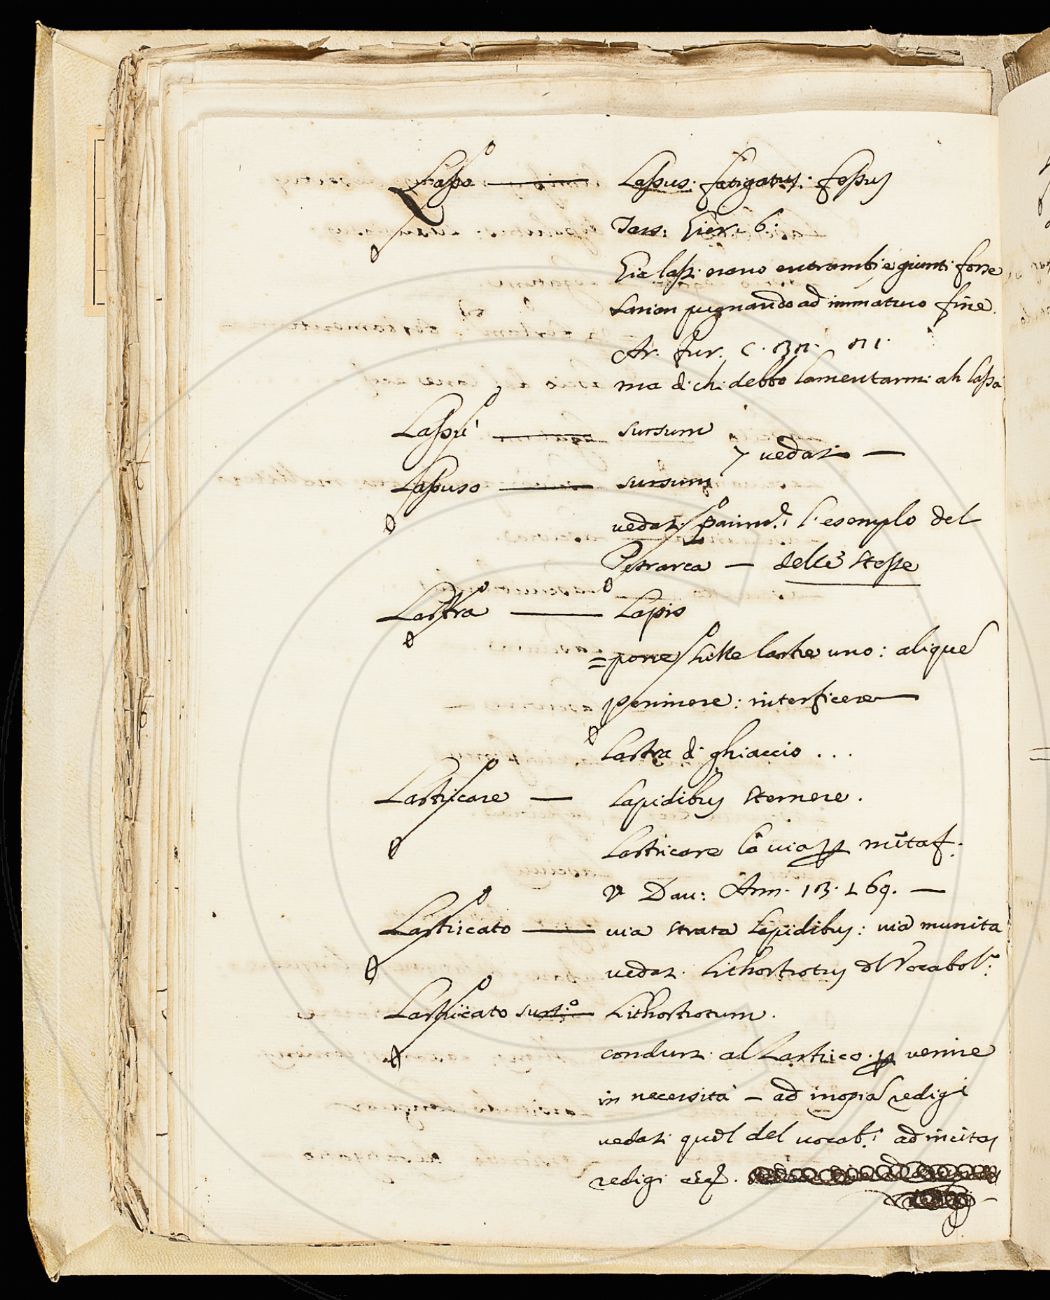 Lasso — Lassus: fatigatus: fessus
Tass: Gier: 6.
Gia lassi erano entrambi e giunti forse
Sarian pugnando ad immaturo fine.
Ar. fur. C.
ma di chi debbo lamentarmi ah lassa
Lassu' — sursum
7 vedasi —
Lassuso — sursum
vedasi l'esemplo del
Petrarca — delle stesse
Lastra — Lapis
=porre sulle lastre uno: aliquē
perimere: interficere
Lastra di ghiaccio . . .
Lastricare — Lapidibus sternere.
Lastricare la via metaf.
V Dav: Ann. 13. 169. —
Lastricato — via strata Lapidibus: via munita
vedasi. Lithostrotus Vocabol:
Lastricato — Lithostrotum.
condursi al Lastrico. venire
in necessità — ad inopiā redigi
vedasi del vocab: ad incitas
redigi